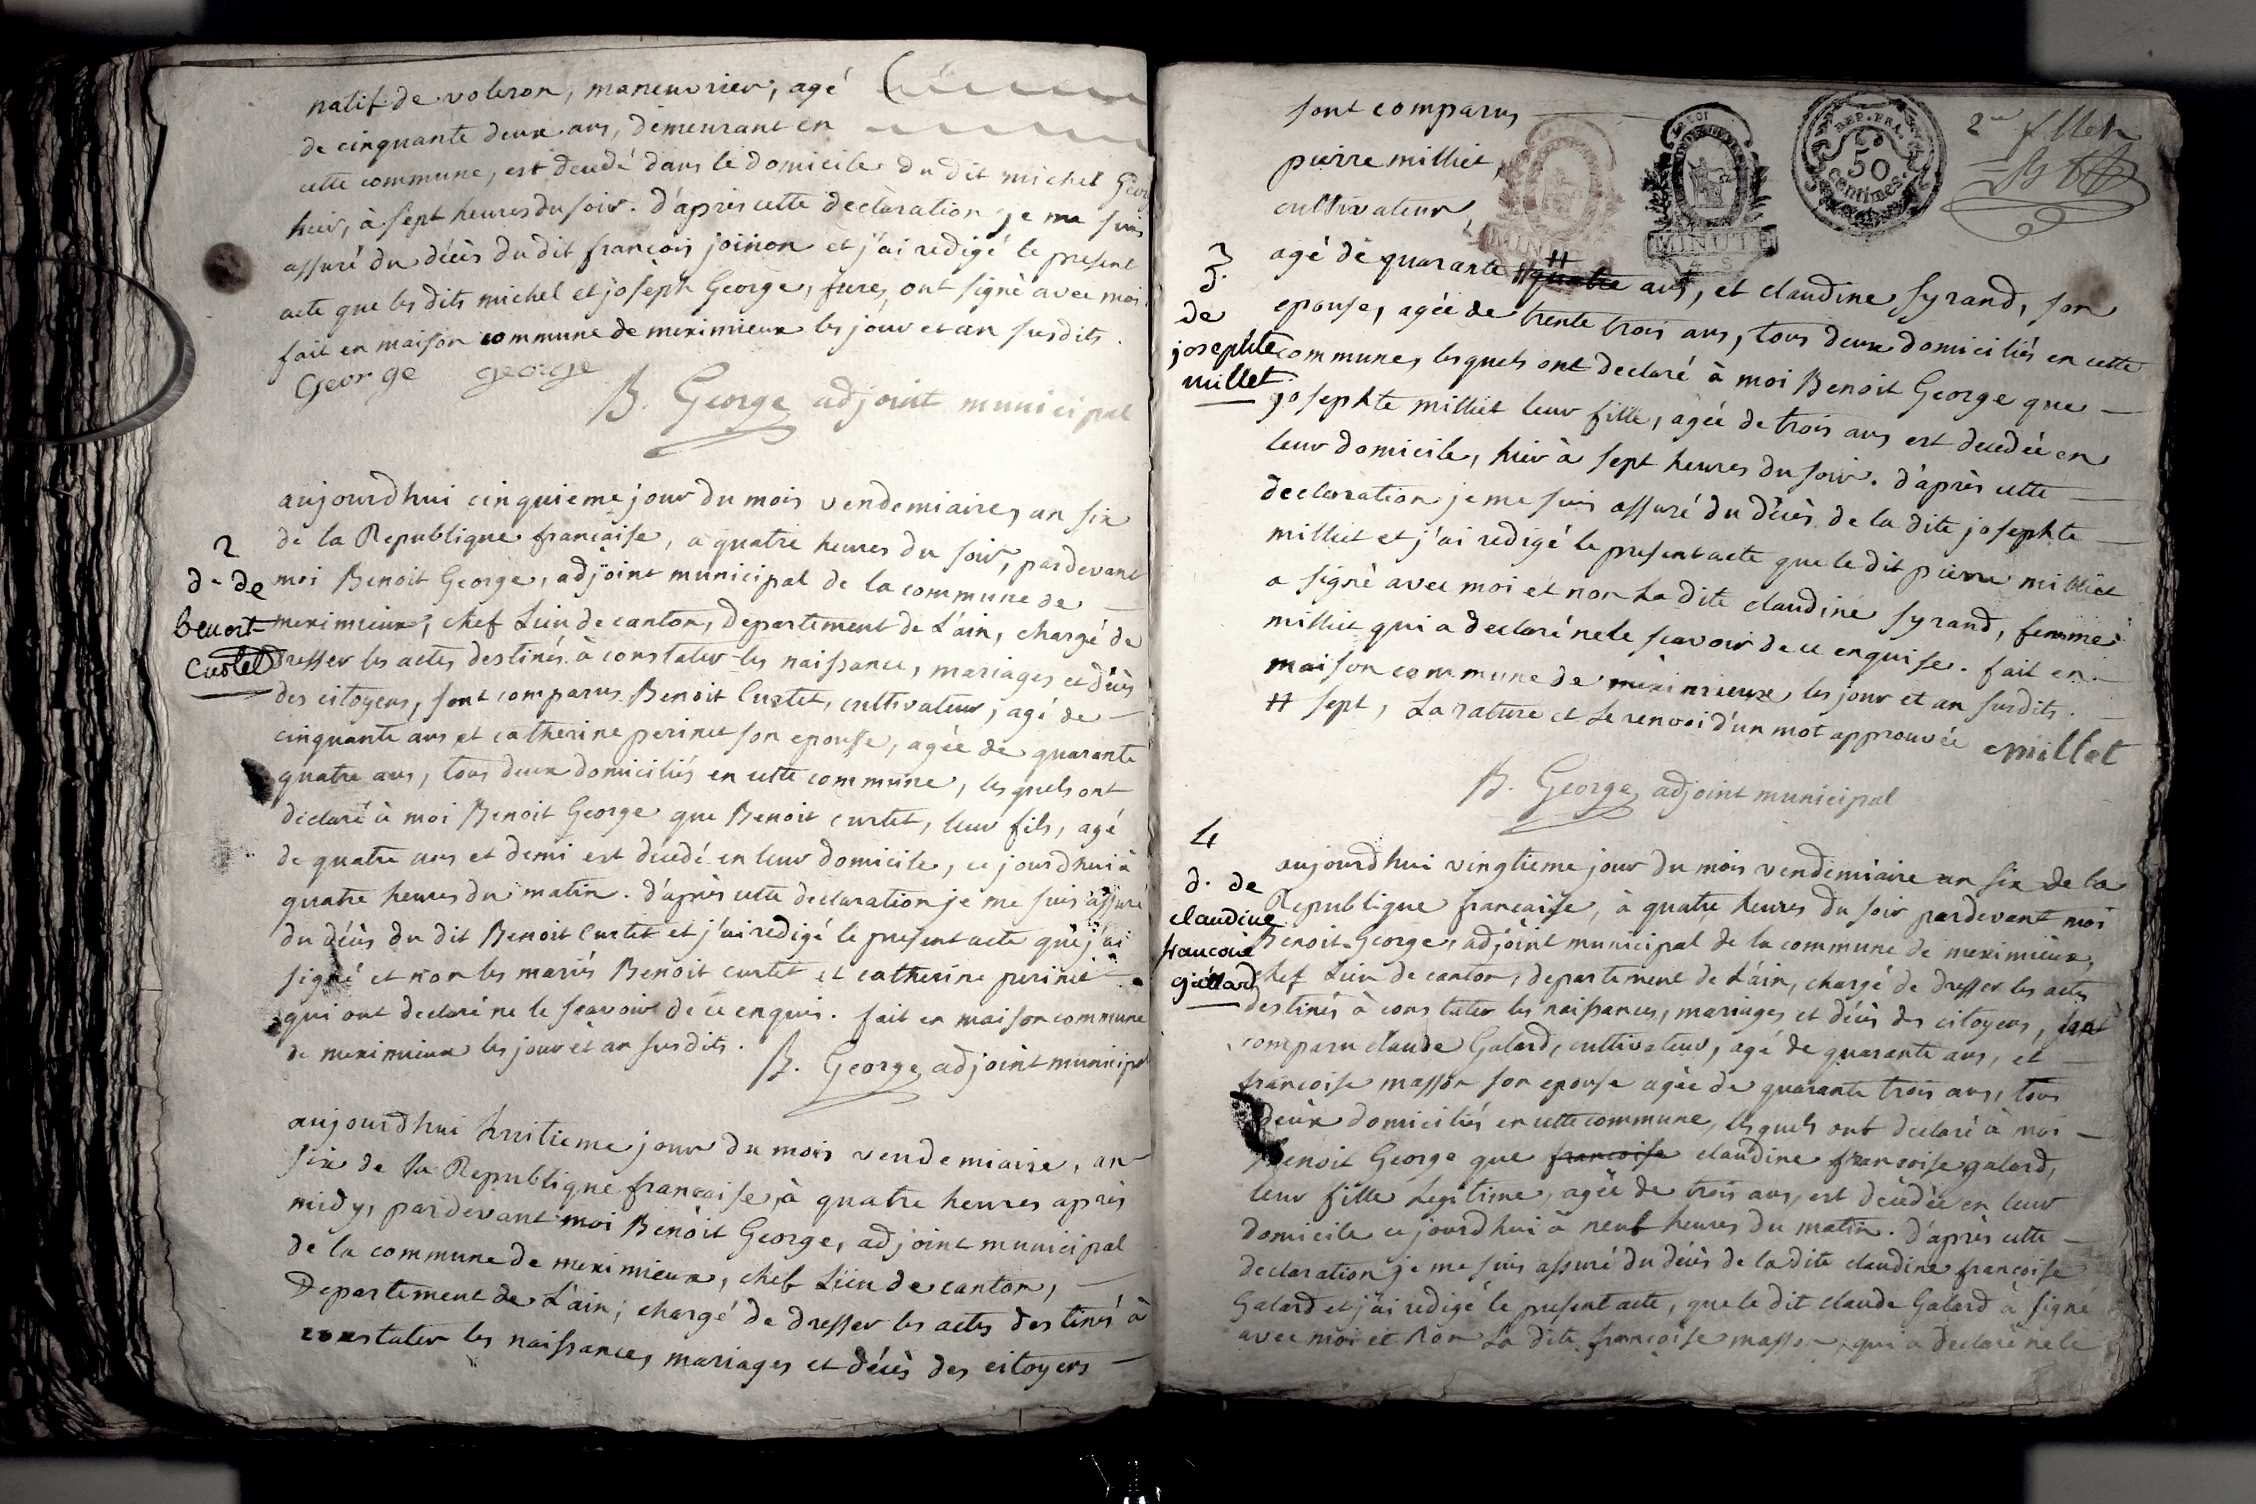 natif de voleron, maneuvrier, agé
de cinquante deux ans, demeurant en
cette commune, est decedé dans le domicile du dit michel Geor
hier, à sept heures du soir. d'après cette déclaration je me suis
assuré du décès du dit françois joinon et j'ai redigé le present
acte que les dits michel et joseph George, freres, ont signé avec moi.
fait en maison commune de meximieux les jour et an susdits.
George george
B. George adjoint municipal
2
d. de
benoit
Curtet
aujourdhui cinquieme jour du mois vendemiaire, an six
de la Republique francaise, a quatre heures du soir, pardevant
moi Benoit George, adjoint municipal de la commune de
meximieux, chef Lieu de canton, departement de L'ain, chargé de
dresser les actes destinés à constater les naissance, mariages et décès
des citoyens, sont comparus Benoit Curtet, cultivateur, agé de
cinquante ans et catherine perinet son epouse, agée de quarante
quatre ans, tous deux domiciliés en cette commune, lesquels ont
déclaré à moi Benoit George que Benoit curtet, leur fils, agé
de quatre ans et demi est decedé en leur domicile, ce jourdhui à
quatre heures du matin. d'après cette declaration je me suis assuré
du décès du dit Benoit Curtet et j'ai redigé le present acte que j'ai
signé et non les mariés Benoit curtet et catherine perinet
qui ont declaré ne le scavoir de ce enquis. fait en maison commune
de meximieux les jour et an susdits.
B. George adjoint municipal
aujourdhui huitieme jour du mois vendemiaire, an
six de la Republique francaise, à quatre heures après
midy, pardevant moi Benoit George, adjoint municipal
de la commune de meximieux, chef Lieu de canton,
departement de L'ain, chargé de dresser les actes destinés à
constater les naissances, mariages et décès des citoyens
sont comparus
pierre milliet,
cultivateur,
MINUTE
MINUTE
REP. FRA.
50
centimes.
3
d.
de
josephte
millet
agé de quarante # quatre ans, et claudine syrand, son
epouse, agée de trente trois ans, tous deux domiciliés en cette
commune, lesquels ont declaré à moi Benoit George que
josephte milliet leur fille, agée de trois ans est decedée en
leur domicile, hier à sept heures du soir. d'après cette
declaration je me suis assuré du décès de la dite josephte
milliet et j'ai redigé le present acte que le dit pierre milliet
a signé avec moi et non La dite claudine syrand, femme
milliet qui a declaré ne le scavoir de ce enquise. fait en
maison commune de meximieux les jour et an susdits.
# sept, La rature et Le renvoi d'un mot approuvée pmillet
B. George adjoint municipal
4
d. de
claudine
francoise
galard
aujourdhui vingtieme jour du mois vendemiaire an six de la
Republique francaise, à quatre heures du soir pardevant moi
Benoit George, adjoint municipal de la commune de meximieux,
chef Lieu de canton, departement de L'ain, chargé de dresser les actes
destinés à constater les naissances, mariages et décès des citoyens, sont
comparu claude Galard, cultivateur, agé de quarante ans, et
francoise masson son epouse agée de quarante trois ans, tous
deux domiciliés en cette commune, lesquels ont declaré à moi
Benoit George que francoise claudine francoise galard,
leur fille Legitime, agée de trois ans, est décedée en leur
domicile ce jourdhui à neuf heures du matin. d'après cette
declaration je me suis assuré du décès de la dite claudine francoise
Galard et j'ai redigé le present acte, que le dit claude Galard a signé
avec moi et Non La dite francoise masson, qui a declaré ne le